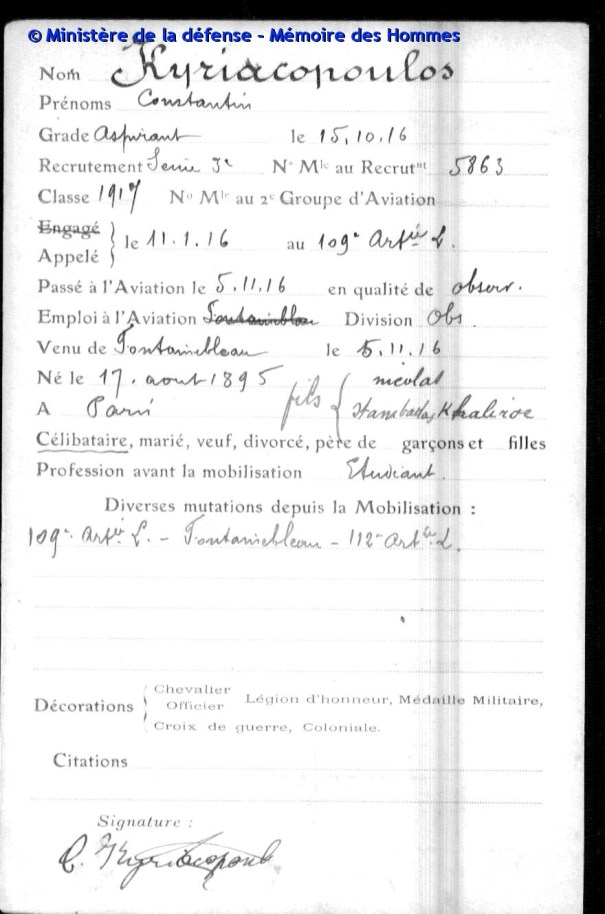 © Ministère de la défense - Mémoire des Hommes
Nom Kyriacopoulos
Prénoms Constantin
Grade Aspirant le 15.10.16
Recrutement Seine 3e No Mle au Recrutnt 5863
Classe 1917 No Mle au 2e Groupe d'Aviation
Engagé
Appelé } le 11.1.16 au 109e Artie L.
Passé à l'Aviation le 5.11.16 en qualité de observ.
Emploi à l'Aviation Fontainebleau Division Obs
Venu de Fontainebleau le 5.11.16
Né le 17. aout 1895 fils { nicolas
A Paris
Célibataire, marié, veuf, divorcé, père de garçons et filles
Profession avant la mobilisation Etudiant.
Diverses mutations depuis la Mobilisation :
109e Artie L. - Fontainebleau - 112e Artie L.
Décorations { Chevalier Officier Légion d'honneur, Médaille Militaire,
Croix de guerre, Coloniale.
Citations
Signature :
C. Kyriacopoulos